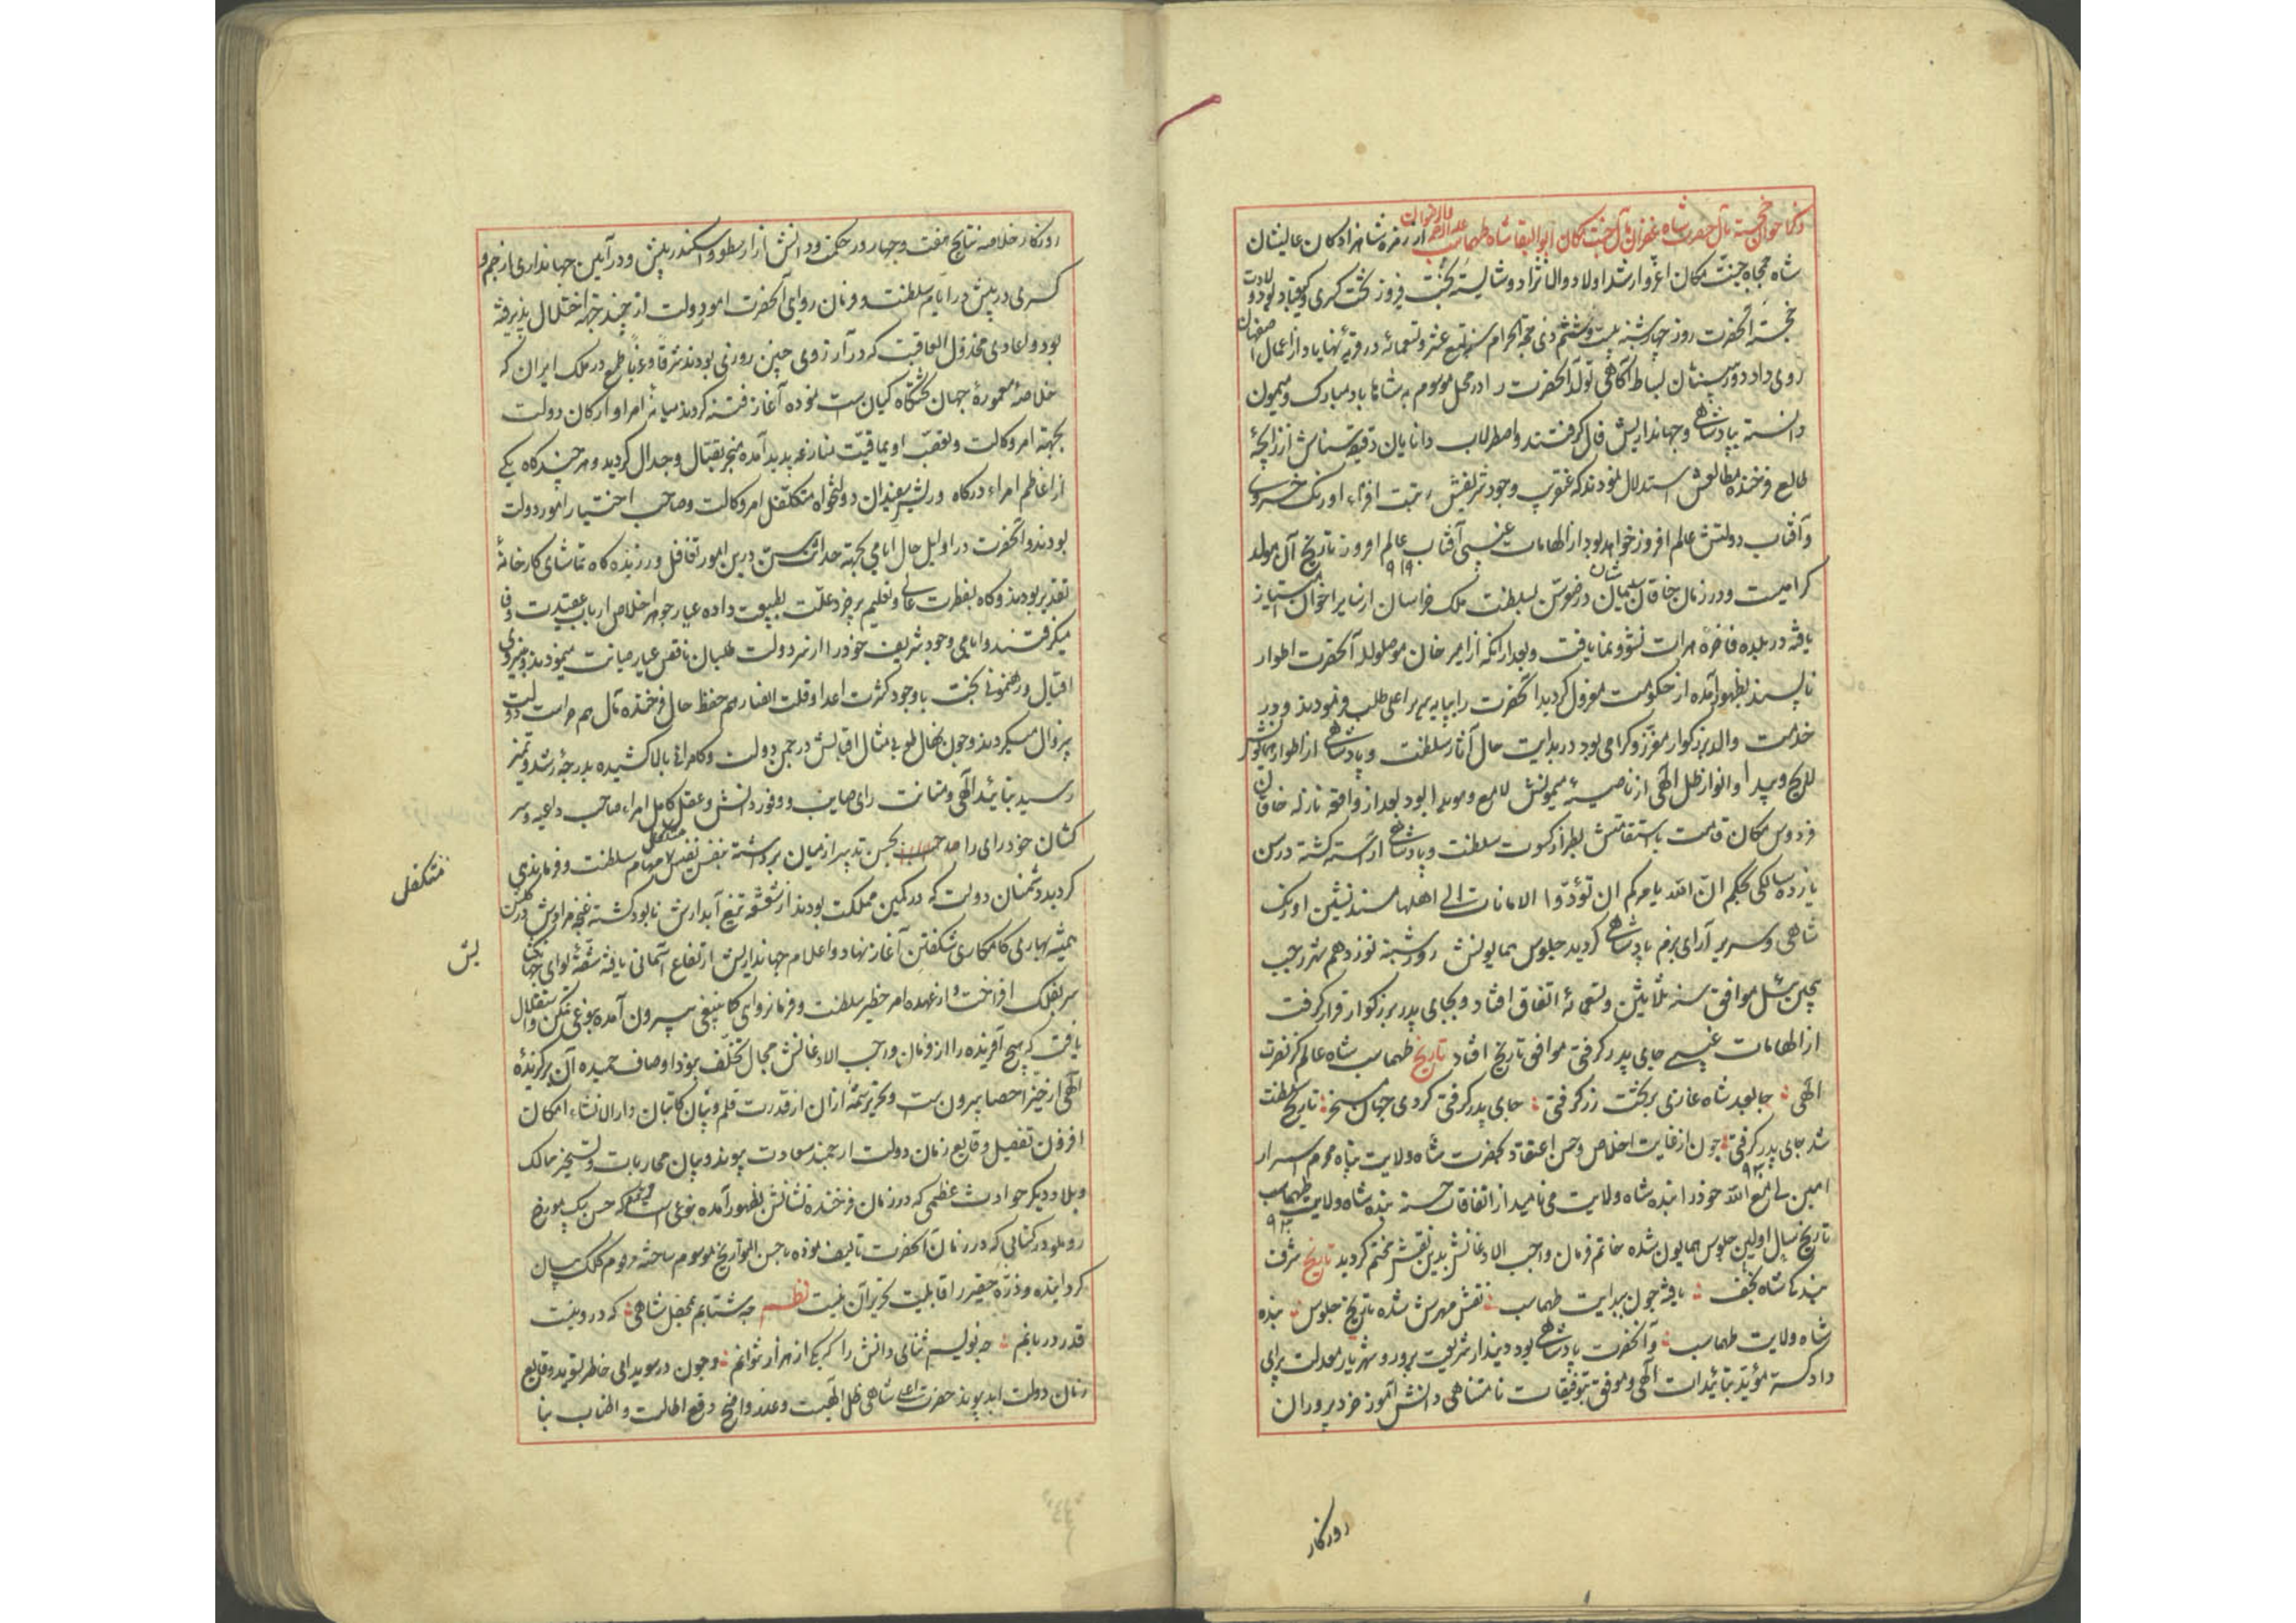 ذکر احوال خجسته مآل حضرت شاه غفران مآل جنت مکان ابوالبقا شاه طهماسب علیه الرحمه والرضوان از زمره شاهزادکان عالیشان
شاه جمجاه جنت مکان اعز و ارشد اولاد والانژاد و شایسته تخت فیروز بخت کسری و کیقباد بود ولادت
خجسته آنحضرت روز چهارشنبه بیست و ششم ذی حجة الحرام سنه تسع عشر و تسعمائه در قریه شهاباد از اعمال اصفهان
روی داد دوربینان بساط آکاهی تولد آنحضرت را در محل موسوم به شاهاباد مبارک و میمون
دانسته بپادشاهی و جهانداریش فال کرفتند و اصطرلاب دانایان دقیقه شناس از زایچهٔ
طالع فرخنده مطالعش استدلال نمودند که عنقریب وجود شریفش زینت افزاء اورنک خسروی
و آفتاب دولتش عالم افروز خواهد بود از الهامات غیبی آفتاب عالم افروز تاریخ آن مولد
۹۱۹
کرامیست و در زمان خاقان سلیمان شان در خوشن بسلطنت ملک خراسان از سایر اخوان امتیاز
یافته در بلده فاخرهٔ هرات نشو و نما یافت و بعد از انکه از امیر خان موصللو لله آنحضرت اطوار
ناپسند بظهور آمده از حکومت معزول کردید آنحضرت را بپایه سریر اعلی طلب فرمودند و در
خدمت والد بزرکوار معزز و کرامی بود در بدایت حال آثار سلطنت و پادشاهی از اطوار همایونش
لایح و پیدا و انوار ظل الهی از ناصیهٔ میمونش لامع و هویدا بود بعد از واقعه نازله خاقان
فردوس مکان قامت باستقامتش بطراز کسوت سلطنت و پادشاهی آراسته کشته در سن
یازده سالکی بحکم ان الله یامرکم ان تؤدوا الامانات الی اهلها مسند نشین اورنک
شاهی و سریر آرای بزم پادشاهی کردید جلوس همایونش روز شنبه نوزدهم شهر رجب
پیچین ئیل موافق سنه ثلاثین و تسعمائهٔ اتفاق افتاد و بجای پدر بزرکوار قرار کرفت
از الهامات غیبی جای پدر کرفتی موافق تاریخ افتاد تاریخ طهماسب شاه عالم کز نصرت
الهی جا بعد شاه غازی بر تخت زر کرفتی جای پدر کرفتی کردی جهان مسخر تاریخ سلطنت
شد جای پدر کرفتی چون از غایت اخلاص و حسن اعتقاد بحضرت شاه ولایت پناه محرم اسرار
۹۳۰
امین لی مع الله خود را بنده شاه ولایت می نامید از اتفاقات حسنه بنده شاه ولایت طهماسب
۹۳۰
تاریخ سال اولین جلوس همایون شده خاتم فرمان واجب الاذعانش بدین نقش مختم کردید تاریخ شرف
بندکی شاه نجف یافته چون ببدایت طهماسب نقش مهرش شده تاریخ جلوس بنده
شاه ولایت طهماسب و آنحضرت پادشاهی بود دیندار شریعت پرور و شهریار معدلت پرای
دادکستر مؤید بتائیدات الهی و موفق بتوفیقات نامتناهی دانش آموز خرد پروران
روزکار
روزکار خلاصه نتایج هفت و چهار در حکمت و دانش از ارسطو و اسکندر پیش و در آیین جهانداری از جم و
کسری در پیش در ایام سلطنت و فرمان روایی آنحضرت امور دولت از چند جهة اختلال پذیرفته
بود و اعادی مخذول العاقبت که در آرزوی چنین روزی بودند شرقا و غربا طمع در ملک ایران که
خلاصهٔ معمورهٔ جهان تختکاه کیان است نموده آغاز فتنه کردند میانه امرا و ارکان دولت
بجهة امر وکالت و تعصب اویماقیت منازعه پدید آمده منجر بقتال و جدال کردید و هر چند کاه یکی
از اعاظم امراء درکاه و ریش سفیدان دولتخواه متکفل امر وکالت و صاحب اختیار امور دولت
بودند و آنحضرت در اوایل حال ایامی بجهة حداثت سن درین امور تغافل ورزیده کاه تماشای کارخانهٔ
تقدیر بودند و کاه بفطرت عالی و تعلیم پیر خرد علت بطبیعت داده عیار جوهر اخلاص ارباب عقیدت و وفا
میکرفتند و ایامی وجود شریف خود را از شر دولت طلبان ناقص عیار صیانت مینمودند و بنیروی
اقبال و رهنمونی بخت با وجود کثرت اعدا و قلت انصار هم حفظ حال فرخنده مآل هم حراست دولت
بیزوال میکردند و چون نهال طبع بی مثال اقبالش در چمن دولت و کامرانی بالا کشیده بدرجهٔ رشد و تمیز
رسید بتائید الهی و متانت رای صایب و وفور دانش و عقل کامل امراء صاحب داعیه و سر
کشان خود رای را بحسن تدبیر از میان برداشته بنفس نفیس متکفل مهام سلطنت و فرماندهی
متکفل
کردید دشمنان دولت که در کمین مملکت بودند از شعشعه تیغ آبدارش نابود کشته غنچه مرادش در کلشن
همیشه بهار بی کامکاری شکفتن آغاز نهاد و اعلام جهانداریش ارتفاع آسمانی یافته شقهٔ لوای جهانکشا
یش
سر بفلک افراخت از عهده امر خطیر سلطنت و فرمانروایی کما ینبغی بیرون آمده بنوعی تمکن و استقلال
یافت که هیچ آفریده را از فرمان واجب الاذعانش مجال تخلف نبود اوصاف حمیده آن برکزیدهٔ
الهی از حیز احصا بیرون است و تحریر شمهٔ از ان از قدرت قلم و بنان کاتبان دارالانشاء امکان
افزون تفصیل وقایع زمان دولت ارجمند سعادت پیوند و بیان محاربات و تسخیر ممالک
و بلاد و دیکر حوادث عظمی که در زمان فرخنده نشانش بظهور آمده بنوعی که حسن بیک مورخ
روملو در کتابی که در زمان آنحضرت تالیف نموده باحسن التواریخ موسوم ساخته مرقوم کلک بیان
کردانیده و ذرهٔ حقیر را قابلیت تحریر آن نیست نظم چه شتابم بمحفل شاهی که درو نیست
قدر دربانم چه نویسم ثنای دانش را که یکی از هزار نتوانم و چون در سویدای خاطر تسوید وقایع
زمان دولت ابد پیوند حضرت اعلی شاهی ظل الهیست و عذر واضح در قع اطالت و اطناب بنا